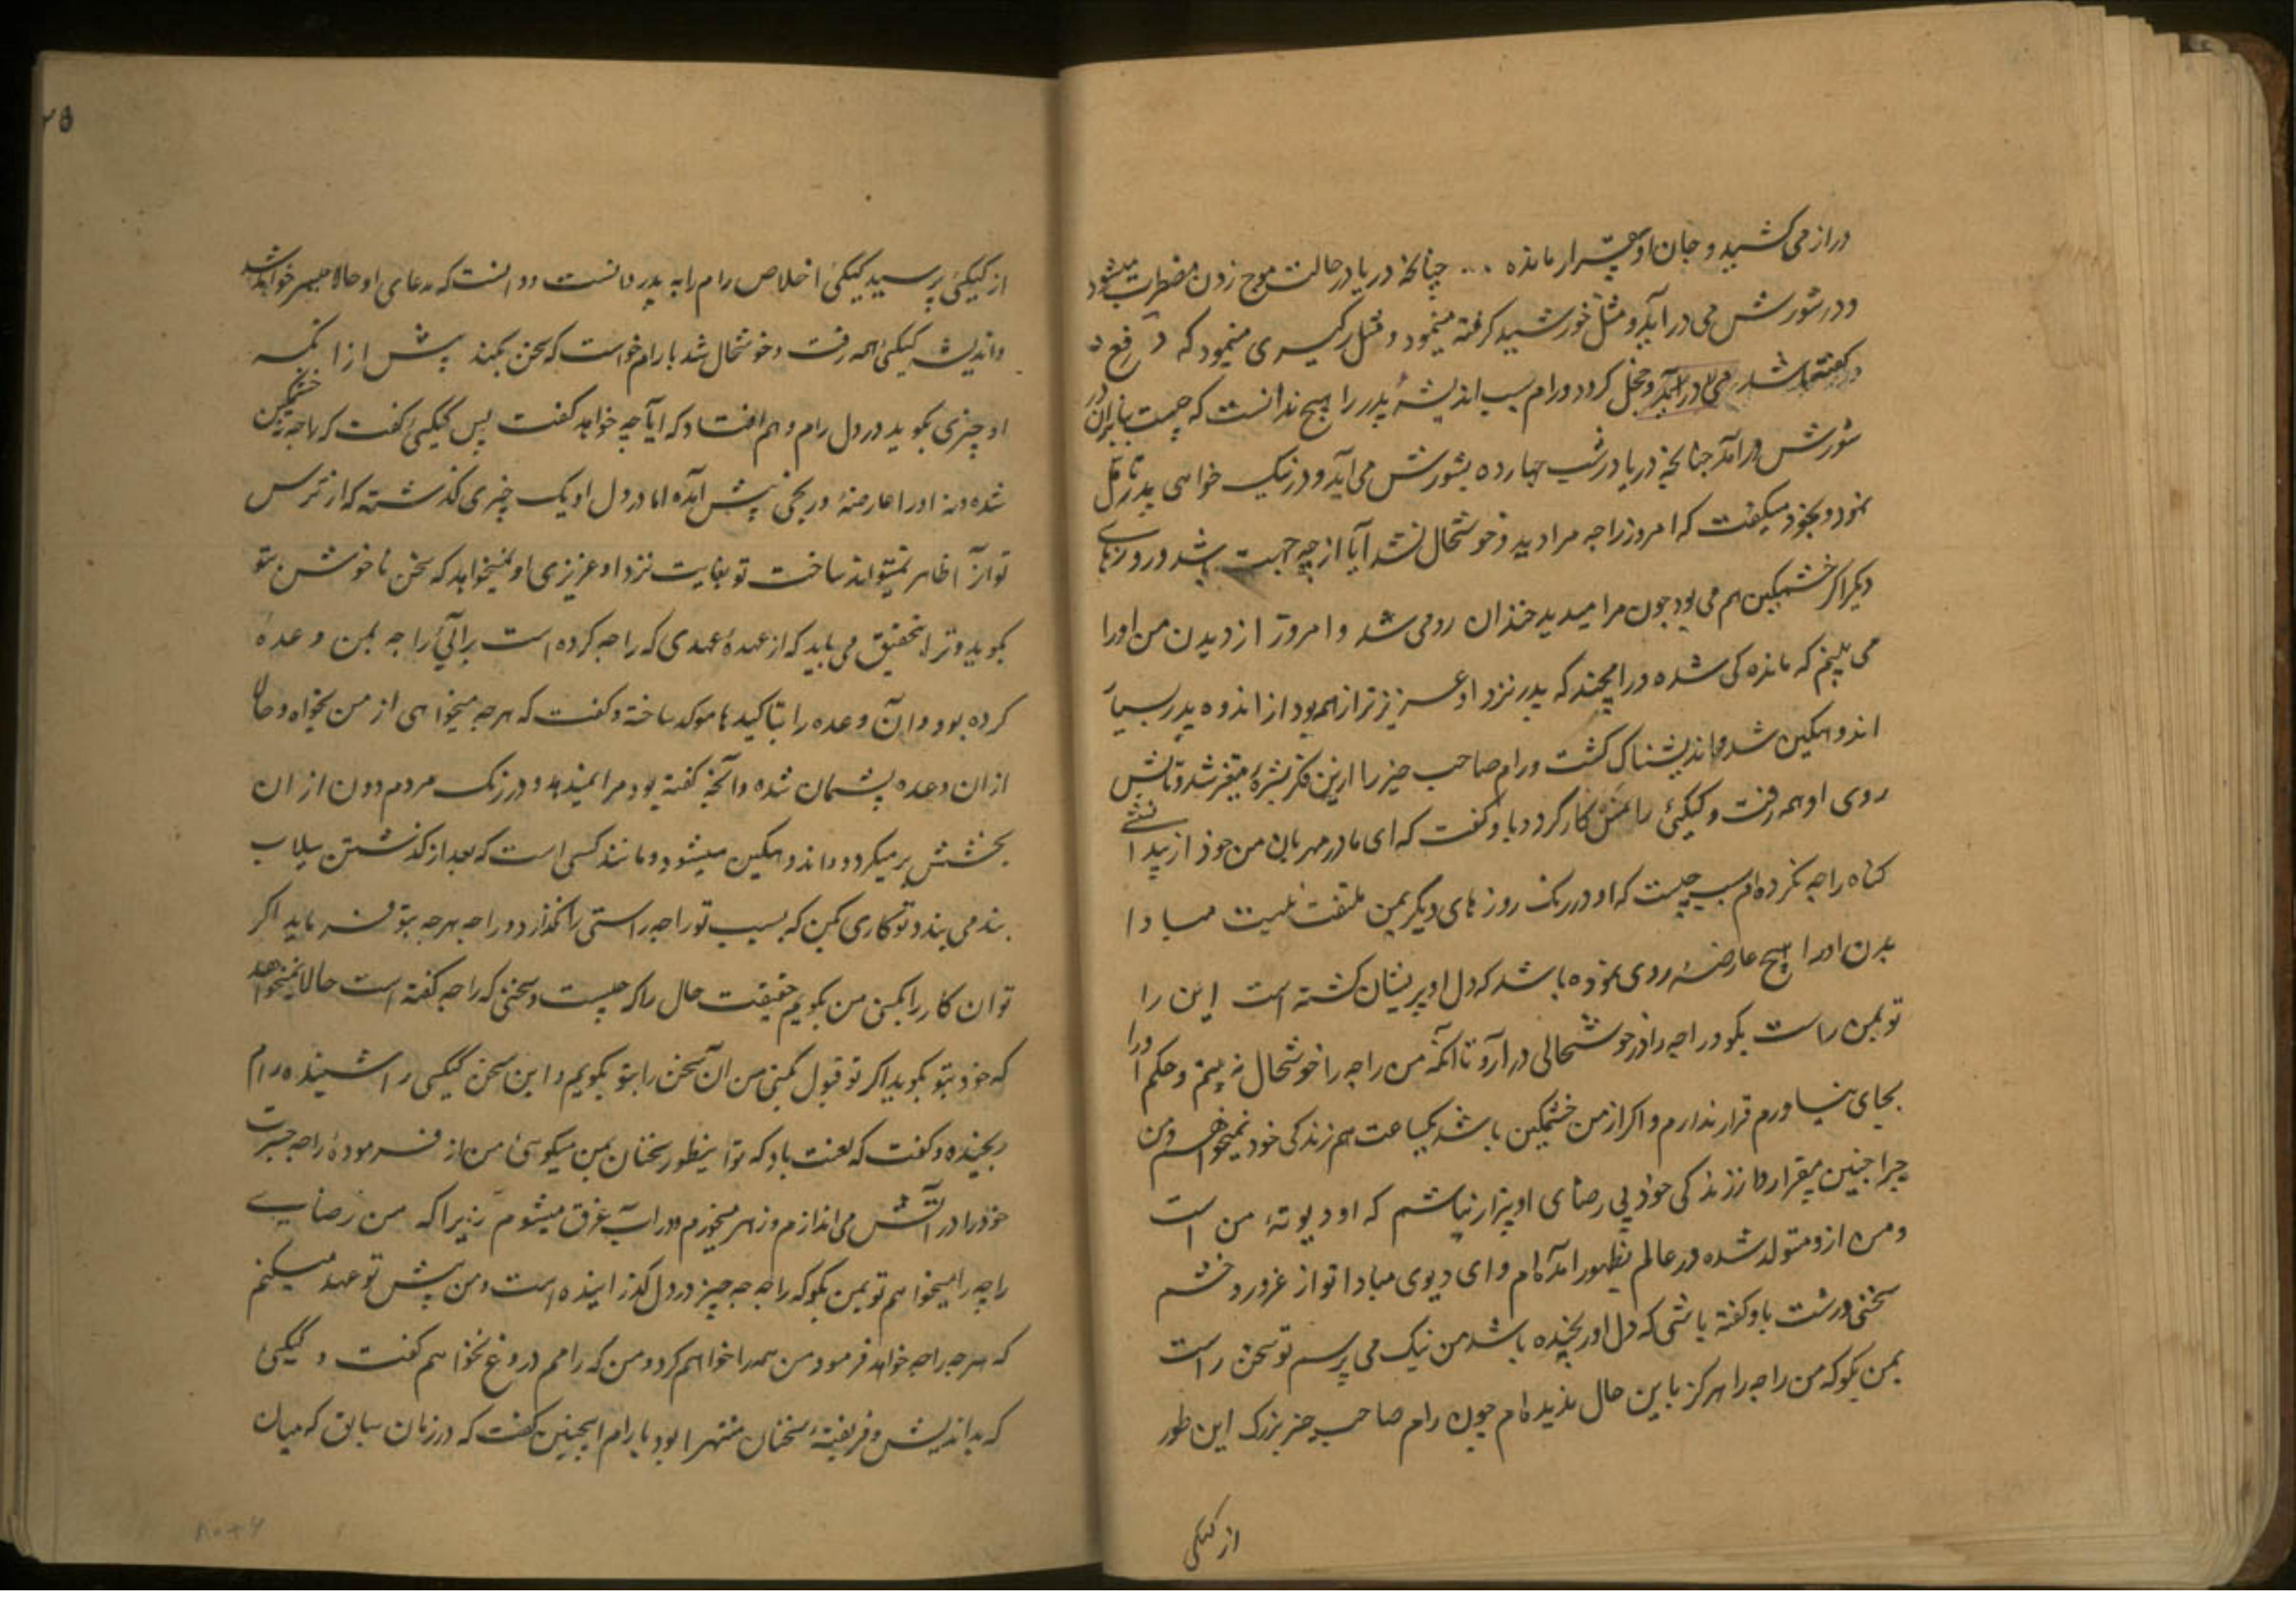 دراز می کشید و جان او بیقرار مانده ... چنانچه دریا در حالت موج زدن مضطرب میشود
و در شورش می در آید و مثل خورشید گرفته مینمود و مثل رکیسری مینمود که در رفع
در گفته باشد می در آمد و خجل گردد و رام سبب اندیشهٔ پدر را هیچ ندانست که چیست بنابران در
شورش در آمد چنانچه دریا در شب چهارده بشورش می آید و در نیک خواهی پدر تامل
نمود و بخود میگفت که امروز راجه مرا دیده خوشحال نشد آیا از چه جهت باشد در روزهای
دیگر اگر خشمگین هم می بود چون مرا میدید خندان رو می شد و امروز از دیدن من او را
می بینم که ماندگی شده در اینچند که پدر نزد او عزیزتر از همه بود از اندوه پدر بسیار
اندوهگین شد و اندیشناک گشت و رام صاحب خیر را ازین فکر بشره متغیر شد و تابش
روی او همه رفت و کیکئی را نمسکار کرد و با او گفت که ای مادر مهربان من خود از پیدانشی
گناه راجه نکرده ام سبب چیست که او در رنگ روزهای دیگر بمن ملتفت نیست مبادا
بدن او را هیچ عارضه روی نموده باشد که دل او پریشان گشته است این را
تو بمن راست بگو و راجه را در خوشحالی در آر و تا آنکه من راجه را خوشحال نه بینم و حکم او را
بجای نیاورم قرار ندارم و اگر از من خشمگین باشد یکساعت هم زندگی خود نمیخواهم و من
چرا چنین بیقرار و از زندگی خود بی رضای او بیزار نباشم که او دیوتهٔ من است
و من ازو متولد شده در عالم بظهور آمده ام و ای دیوی مبادا تو از غرور و خشم
سخنی درشت باو گفته باشی که دل او رنجیده باشد من نیک می پرسم تو سخن راست
بمن بگو که من راجه را هرگز باین حال ندیده ام چون رام صاحب خیر بزرگ این طور
از کیکئی
۲۵
از کیکئی پرسید کیکئی اخلاص رام را به پدر دانست و دانست که مدعای او حالا میسر خواهد شد
و اندیشه کیکئی همه رفت و خوشحال شد با رام خواست که سخن بکند پیش از آنکه
او چیزی بگوید در دل رام وهم افتاد که آیا چه خواهد گفت پس کیکئی گفت که راجه نه خشمگین
شده و نه او را عارضهٔ و رنجی پیش آمده اما در دل او یک چیزی گذشته که از ترس
تو آن اظهار نمیتواند ساخت تو بغایت نزد او عزیزی او نمیخواهد که سخن ناخوش بتو
بگوید و ترا بتحقیق می باید که از عهدهٔ عهدی که راجه کرده است برآئی راجه بمن وعده
کرده بود و آن وعده را بتاکیدها موکد ساخته و گفت که هرچه میخواهی از من بخواه و حالا
ازان وعده پشیمان شده و آنچه گفته بود مرا نمیدهد و در رنگ مردم دون از ان
بخشش بر میگردد و اندوهگین میشود و مانند کسی است که بعد از گذشتن سیلاب
بند می بندد تو کاری بکن که بسبب تو راجه راستی را نگذارد و راجه هرچه بتو فرماید اگر
تو ان کار را بکنی من بگویم حقیقت حال را که چیست و سخنی که راجه گفته است حالا نمیخواهد
که خود بتو بگوید اگر تو قبول کنی من آن سخن را بتو بگویم و این سخن کیکئی را شنیده رام
رنجیده و گفت که لعنت باد که تو اینطور سخنان بمن میگوئی من از فرمودهٔ راجه جسرت
خود را در آتش می اندازم و زهر میخورم و در آب غرق میشوم زیرا که من رضای
راجه را میخواهم تو بمن بگو که راجه چه چیز در دل گذرانیده است و من پیش تو عهد میکنم
که هرچه راجه خواهد فرمود من همه را خواهم کرد و من که رامم دروغ نخواهم گفت و کیکئی
که بداندیش و فریفتهٔ سخنان منتهرا بود با رام اینچنین گفت که در زمان سابق که میان